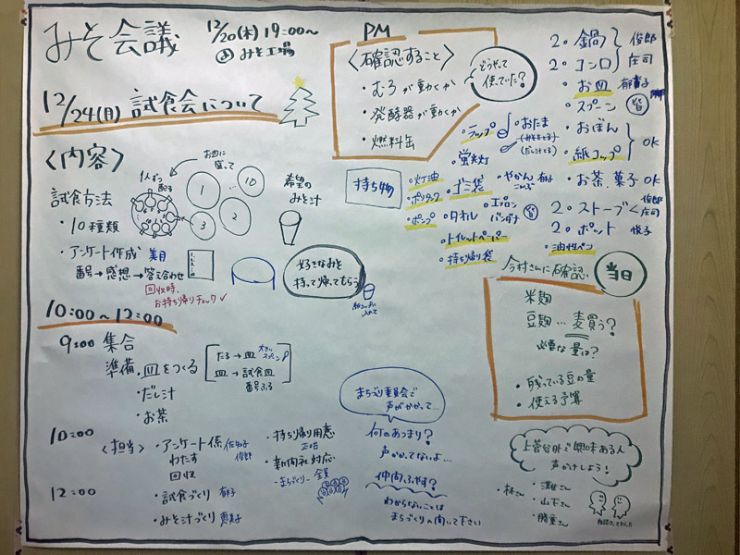 みそ会議
12/20(木) 19:00〜
みそ工場
12/24(月) 試食会について
〈内容〉
試食方法
・10種類
・アンケート作成
番号→感想→答え合わせ
回収時、
お持ち帰りチェック✓
1人ずつ
配る
お皿に
盛って
1
10
3
2
希望の
みそ汁
好きなみそを
持って帰ってもらう
10:00〜12:00
9:00 集合
準備・皿をつくる
・だし汁
・お茶
たる→皿
皿→試食皿
番号ふる
10:00
〈担当〉
・アンケート係
わたす
回収
12:00
・試食づくり
・みそ汁づくり
・持ち帰り用意
・新聞社対応
PM
〈確認すること〉
・むろが動くか
・発酵器が動くか
・燃料缶
どうやって
使っていた?
持ち物
・灯油
・ポリタンク
・ポンプ
・ラップ
・蛍光灯
・ゴミ袋
・タオル
・トイレットペーパー
・持ち帰り袋
・おたま
・やかん
・エプロン
バンダナ
皆
2。鍋
俊郎
2。コンロ
庄司
・お皿
・スプーン
皆
・おぼん
・紙コップ
OK
・お茶、菓子 OK
2。ストーブ
俊郎
庄司
2。ポット 悦子
・油性ペン
今村さんに確認
当日
米麹
豆麹…麦買う?
必要な量は?
・残っている豆の量
・使える予算
まちづくり委員会で
声がかかって…
何のあつまり?
声かかってないよ…
仲間ふやす?
わからないことは
まちづくりの
聞いて下さい
上菅谷外で興味ある人
声かけしよう!
・林さん
・山下さん